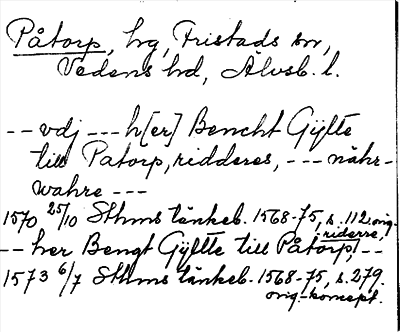 Påtorp, hg, Fristads sn,
Vedens hd, Älvsb. l.
-- vdj --- h[er] Bencht Gÿlte
till Patorp, ridderes, --- nähr-
wahre ---
1570 25/10 Sthms tänkeb. 1568-75, s. 112 orig.
-- her Bengt Gÿltte till Påtorp, riderre, --
1573 6/7 Sthms tänkeb. 1568-75, s. 279.
orig-koncept.